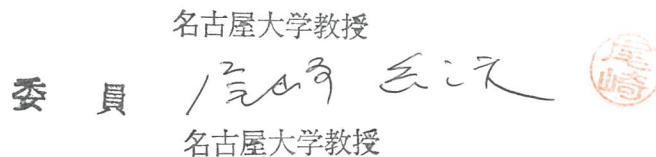 名古屋大学教授
委員 尾崎
尾崎
名古屋大学教授